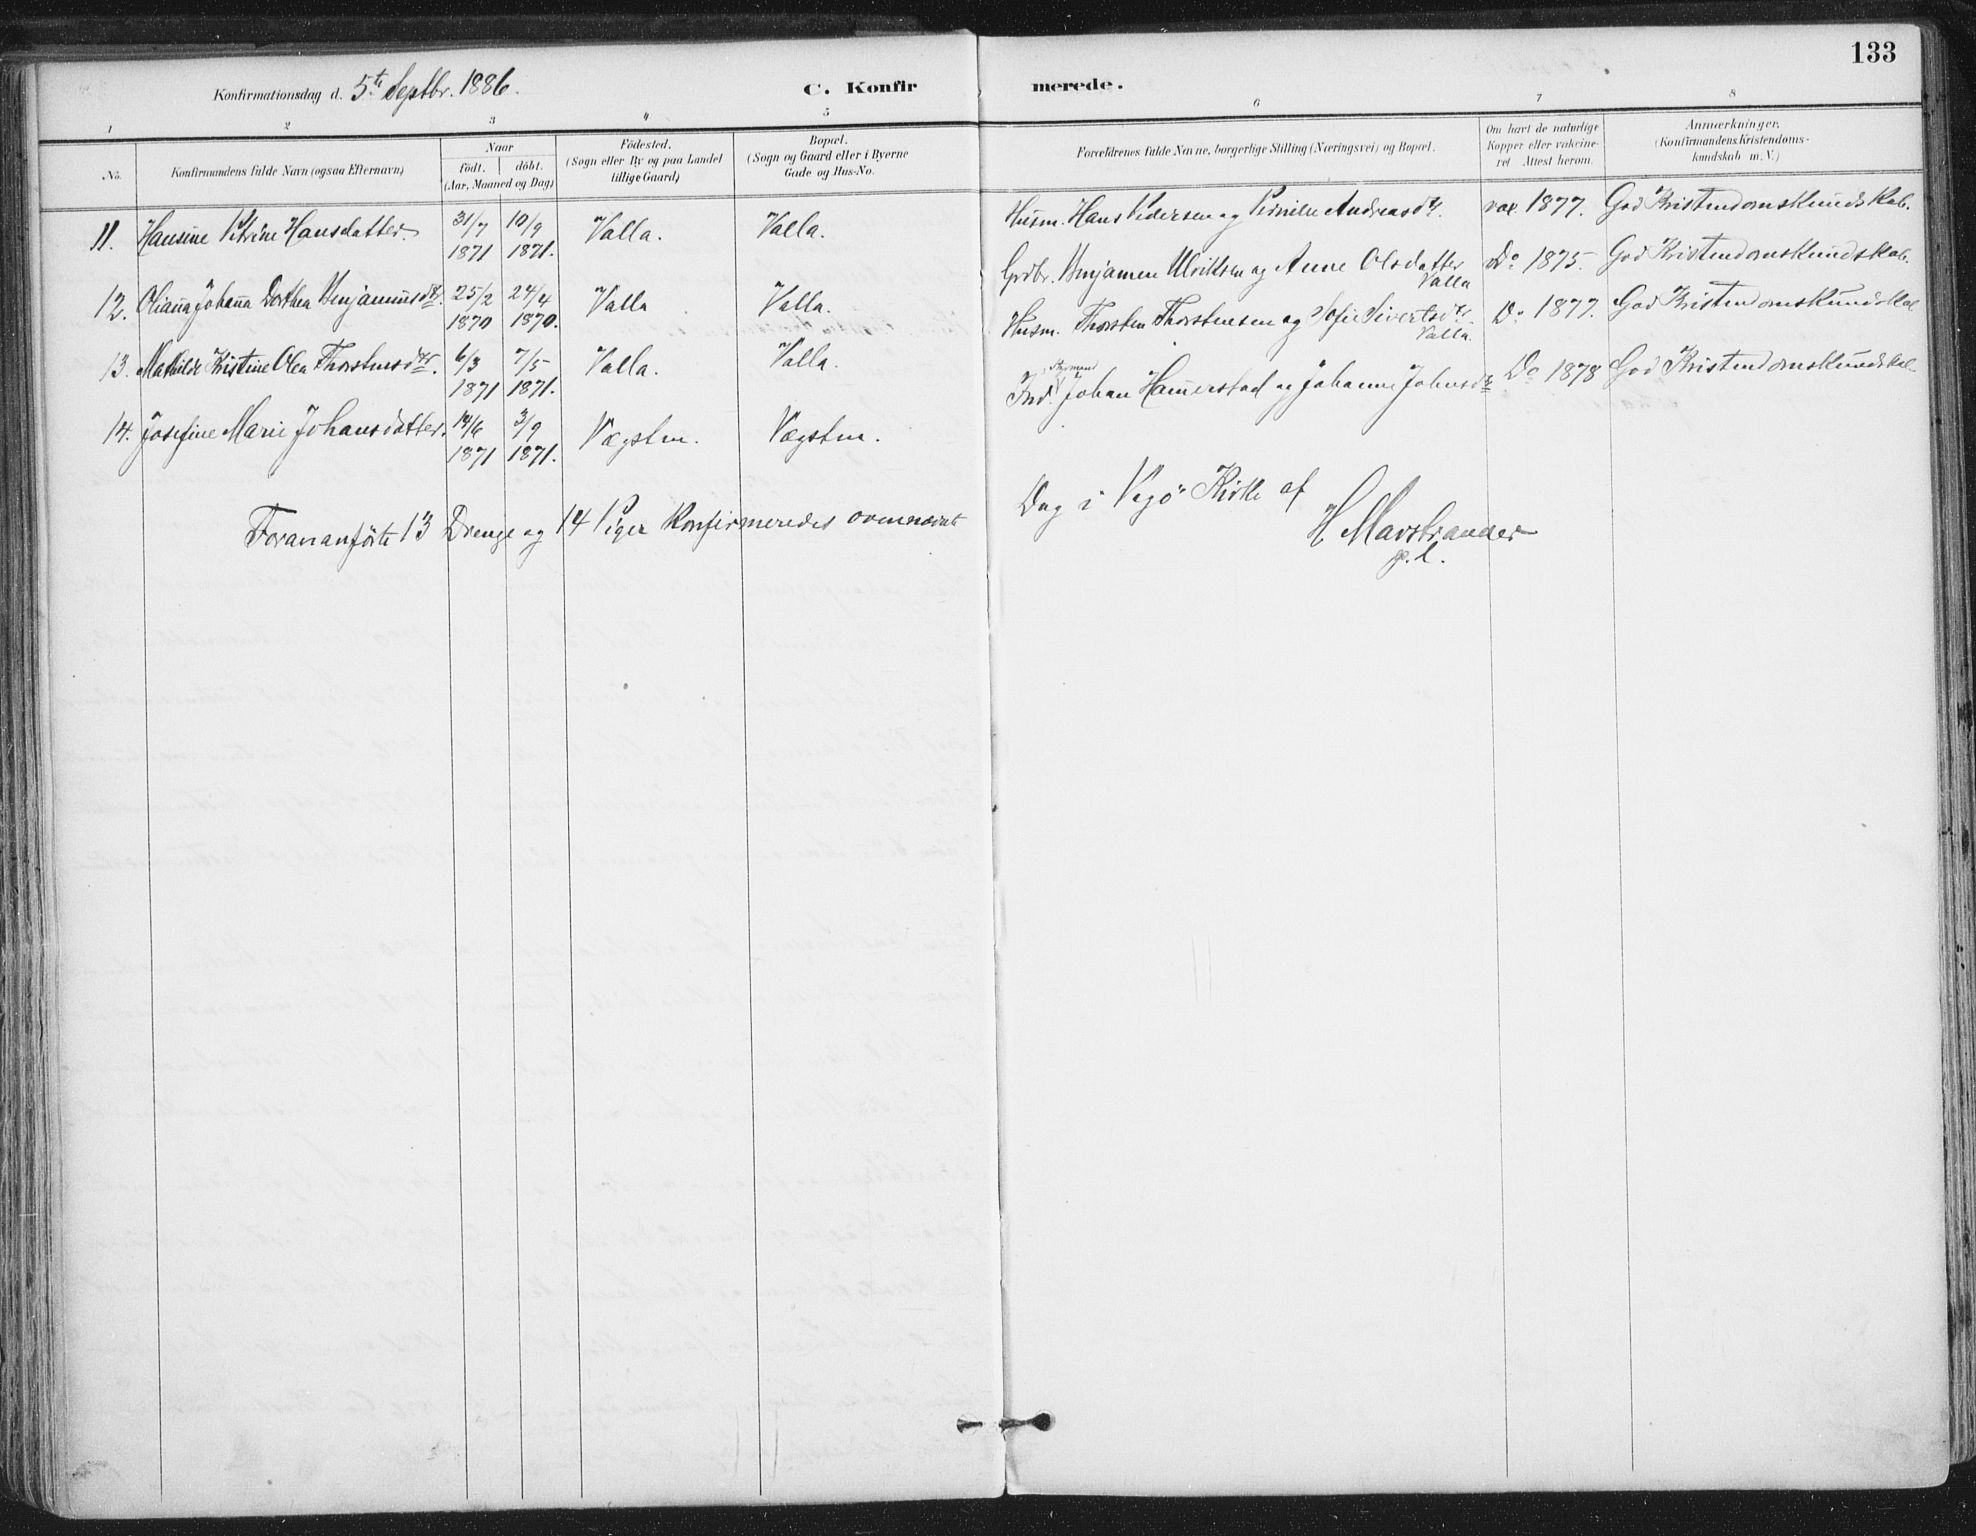 133
Konfirmationsdag d. 5te Septbr. 1886.
C. Konfirmerede.
1 2 3 4 5 6 7 8
No.
Konfirmandens fulde Navn (ogsaa Efternavn)
Naar
födt. döbt.
(Aar, Maaned og Dag)
Födested.
(Sogn eller By og paa Landet
tillige Gaard)
Bopæl.
(Sogn og Gaard eller i Byerne
Gade og Hus-No.
Forældrenes fulde Navne, borgerlige Stilling (Næringsvei) og Bopæl.
Om havt de naturlige
Kopper eller vakcine-
ret Attest herom.
Anmærkninger.
(Konfirmandens Kristendoms-
kundskab m. V.)
11. Hansine Petrine Hansdatter. 31/7 1871 10/9 1871. Valla. Valla. Husm. Hans Pedersen og Pernille Andreasdtr. vax. 1877. God Kristendomskundskab.
12. Oliana Johana Dorthea Benjaminsdtr. 25/2 1870 24/4 1870. Valla Valla. Grdbr. Benjamin Ulriksen og Anne Olsdatter Valla Do 1875. God Kristendomskundskab.
13. Mathilde Kristine Olea Thorstensdtr. 6/3 1871 7/5 1871. Valla. Valla. Husm. Thorsten Thorstensen og Sofie Sivertsdtr. Valla. Do 1877. God Kristendomskundskab
14. Josefine Marie Johansdatter. 14/6 1871 3/9 1871. Vægsten. Vægsten. Ind. Johan Hamerstad og Johanne Johnsdtr Do 1878 God Kristendomskundskab
Forananförte 13 Drenge og 14 Piger Konfirmeredes ovennævnte Dag i Vegö Kirke af
H Mavstrander
p. l.